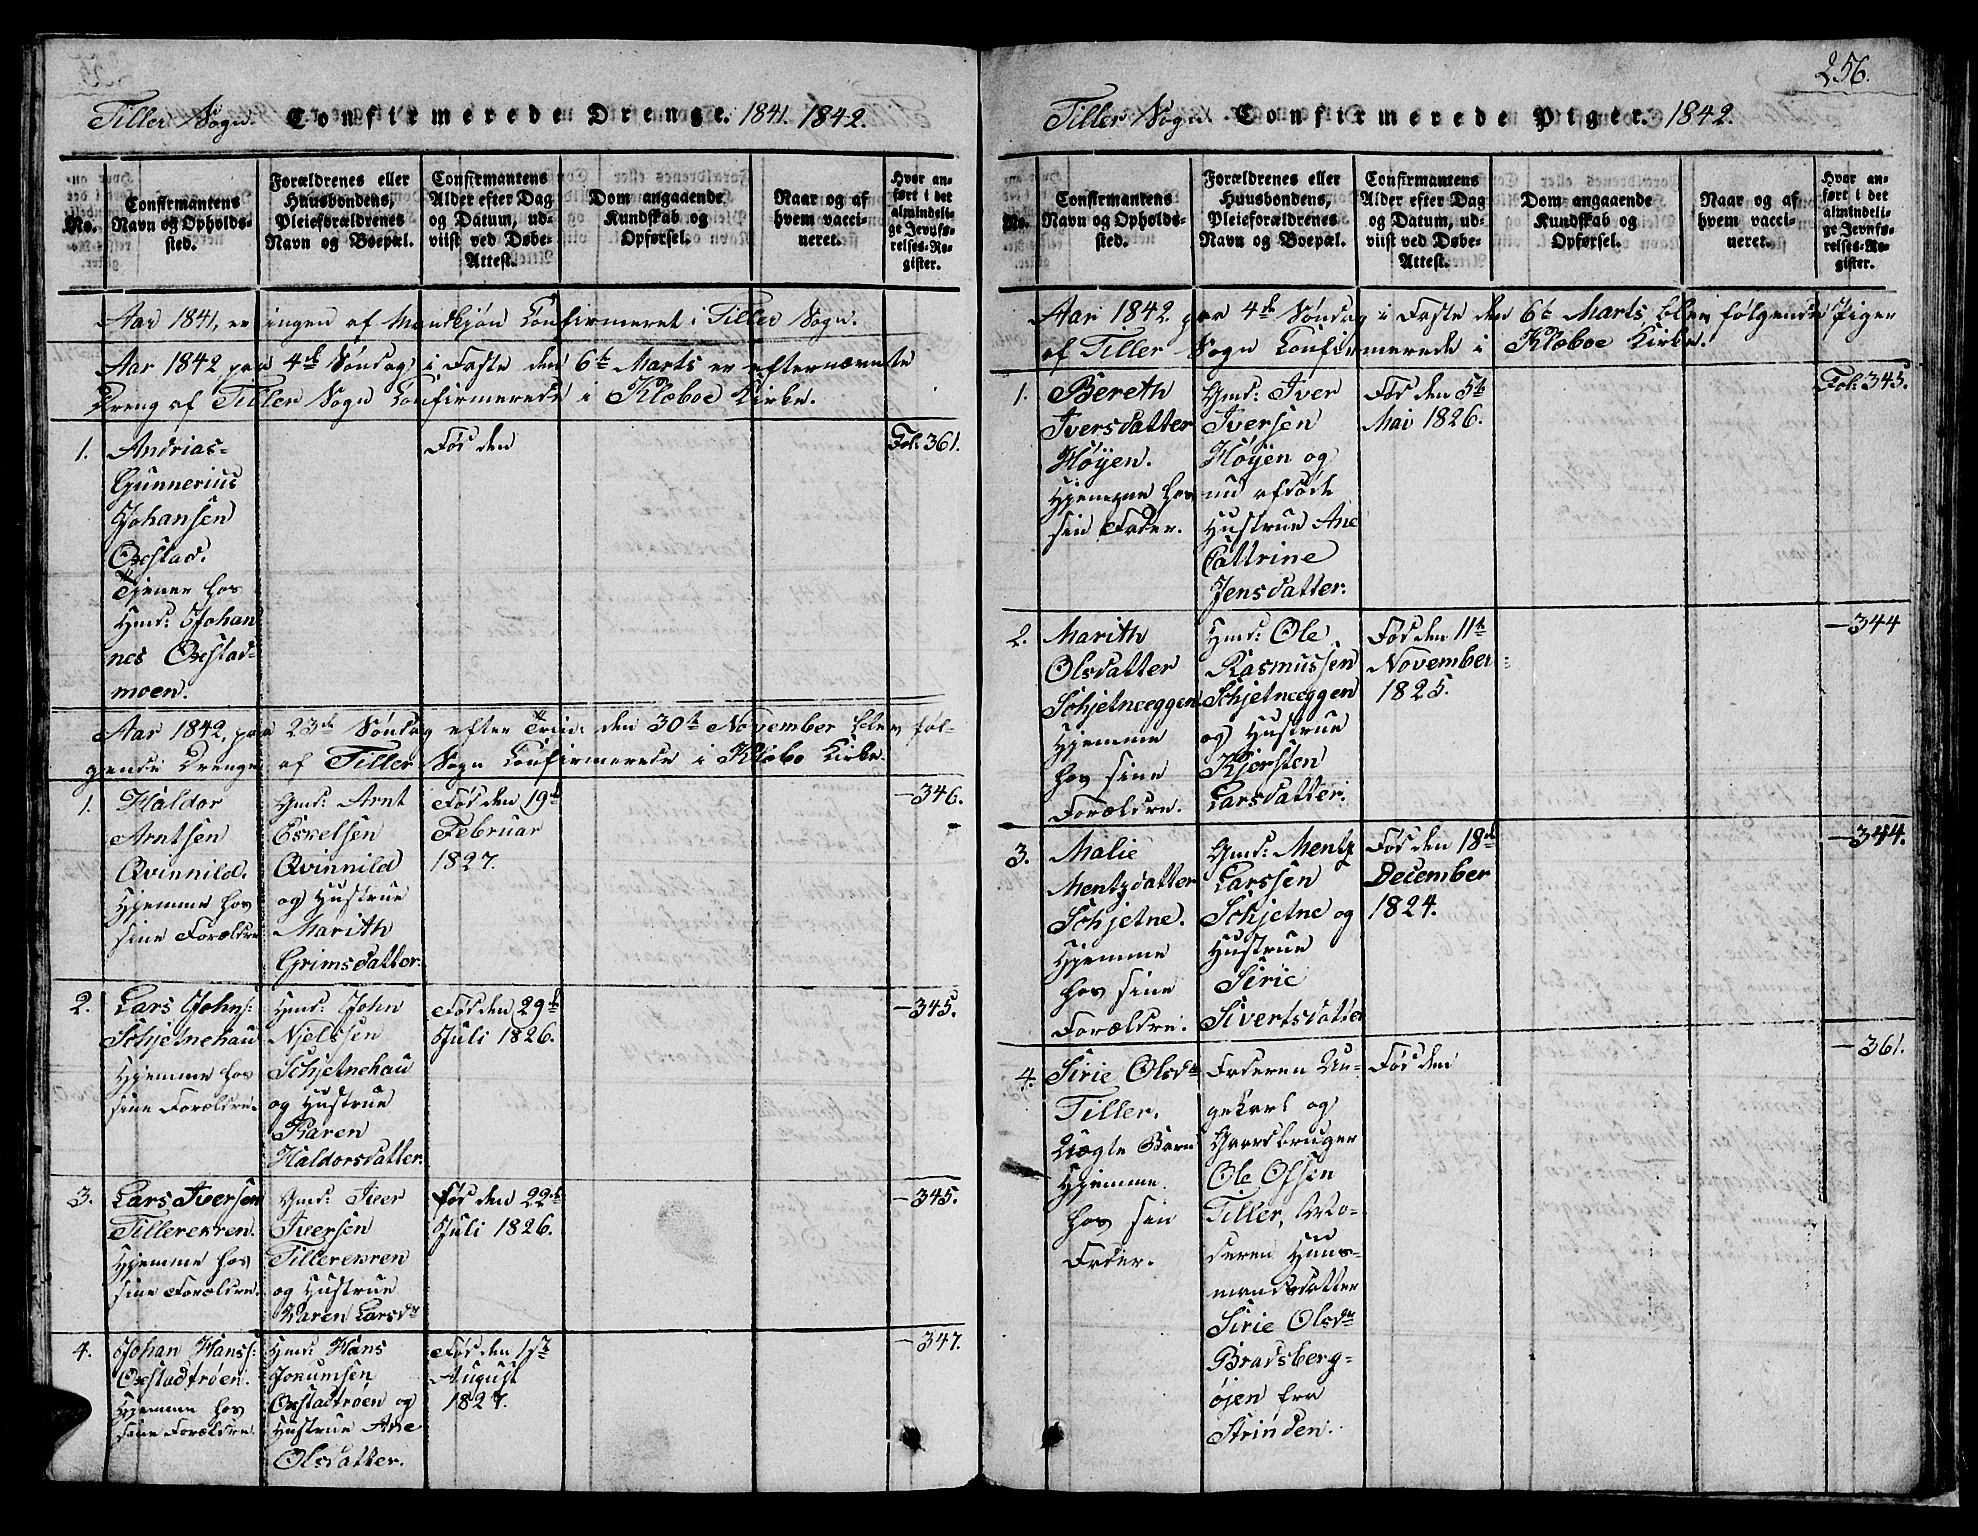 Tiller Sogn. Confirmerede Drenge. 1841. 1842.
No.
Confirmantens
Navn og Opholds-
sted.
Forældrenes eller
Huusbondens,
Pleieforældrenes
Navn og Boepæl.
Confirmantens
Alder efter Dag
og Datum, ud-
viist ved Døbe-
Attest.
Dom angaaende
Kundskab og
Opførsel.
Naar og af
hvem vacci-
neret.
Hvor an-
ført i det
almindeli-
ge Jevnfø-
relses-Re-
gister.
Aar 1841, er ingen af Mandkjøn Confirmeret i Tiller Sogn.
Aar 1842 paa 4de Søndag i Faste den 6te Marts er efternævnte
Dreng af Tiller Sogn Confirmerede i Klæboe Kirke.
1. Andrias-
Gunnerius
Johansen
Oxestad.
Tjener hos
Gmd: Johan
nes Oxestad-
moen.
Fød den
Fol. 361.
Aar 1842, paa 23de Søndag efter Trind: den 30te November blev føl-
gende Drenge af Tiller Sogn Confirmerede i Klæbo Kirke.
1. Haldor
Arntsen
Qvinnild.
Hjemme hos
sine Forældre
Gmd: Arnt
Eskelsen
Qvinnild
og Hustrue
Marith
Grimsdatter.
Fød den 19de
Februar
1827.
— 346.
2. Lars Johns:
Schjetnehau
Hjemme hos
sine Forældre.
Hmd: John
Njelssen
Schjetnehau
og Hustrue
Karen
Haldorsdatter.
Fød den 29de
Juli 1826.
— 345.
3. Lars Iversen
TillereKren.
Hjemme hos
sine Forældre.
Gmd: Iver
Iversen
Tillerekren
og Hustrue
Karen Larsdr
Fød den 22de
Juli 1826.
— 345.
4. Johan Hanss:
Oxestadtrøen.
Hjemme hos
sine Forældre
Hmd: Hans
Jonumsen
Oxestadtrøen og
Hustrue Ane
Olsdatter.
Fød den 1ste
August
1827.
— 347.
256.
Tiller Sogn. Confirmerede Piger. 1842.
No.
Confirmantens
Navn og Opholds-
sted.
Forældrenes eller
Huusbondens,
Pleieforældrenes
Navn og Boepæl.
Confirmantens
Alder efter Dag
og Datum, ud-
viist ved Døbe-
Attest.
Dom angaaende
Kundskab og
Opførsel.
Naar og af
hvem vacci-
neret.
Hvor an-
ført i det
almindeli-
ge Jevnfø-
relses-Re-
gister.
Aar 1842 paa 4de Søndag i Faste den 6te Marts blev følgende Piger
af Tiller Sogn Confirmerede i Klæboe Kirke.
1. Bereth
Iversdatter
Høÿen.
Hjemme hos
sin Fader.
Gmd: Iver
Iversen
Høÿen og
nu afdøde
Hustrue Ane
Cattrine
Jensdatter.
Fød den 5te
Mai 1826.
Fol: 345.
2. Marith
Olsdatter
Schjetneeggen
Hjemme
hos sine
Forældre.
Gmd: Ole
Rasmussen
Schjetneeggen
og Hustrue
Kjersten
Larsdatter.
Fød den 11te
November
1825.
— 344
3. Malie
Mentzdatter
Schjetne.
Hjemme
hos sine
Forældre.
Gmd: Mentz
Larssen
Schjetne og
Hustrue
Sirie
Sivertsdatter
Fød den 18de
December
1824.
— 344.
4. Sirie Olsdr
Tiller.
Uægte Barn
Hjemme
hos sin
Fader.
Faderen Un-
gekarl og
Gaardbruger
Ole Olsen
Tiller, Mo-
deren Huus-
mandsdatter
Sirie Olsdr
Bradsberg-
øjen fra
Strinden.
Fød den
— 361.